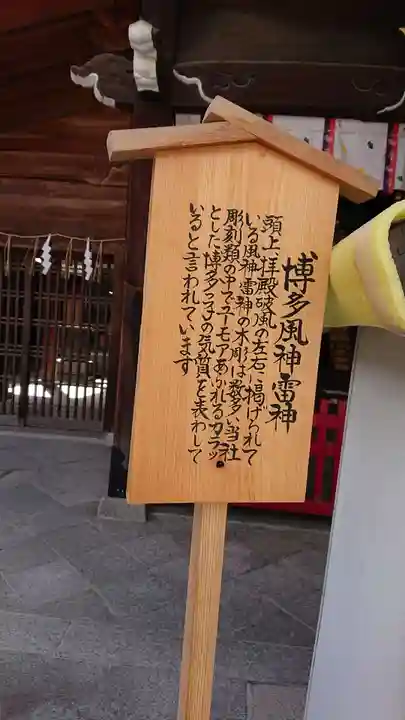 博多風神雷神
頭上拝殿破風の左右に掲げられて
いる風神雷神の木彫は数多い当社
彫刻類の中でユーモアあふれるカラッ
とした博多っ子の気質を表わして
いると言われています